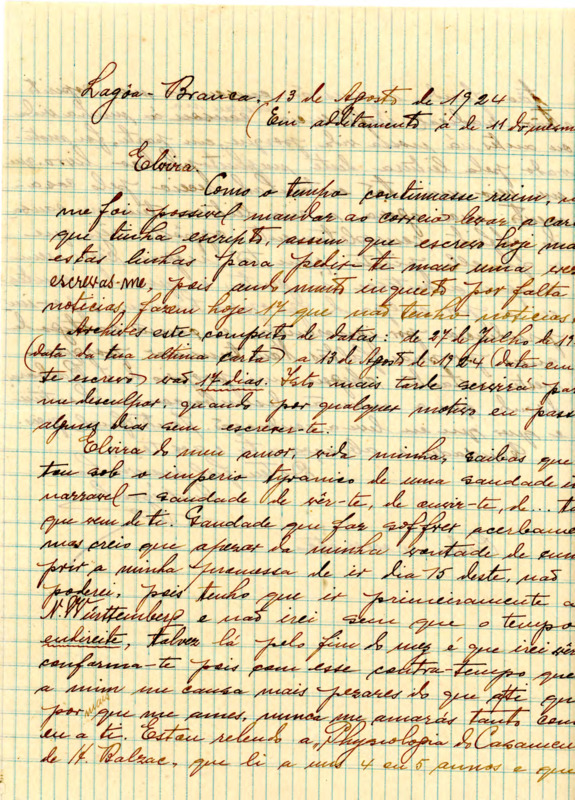 Lagôa-Branca, 13 de Agosto de 1924
(Em additamento á de 11 do mesm
Elvira.
Como o tempo continuasse ruim, n
me foi possivel mandar ao correio levar a car
que tinha escripto, assim que escrevo hoje ma
estas linhas para pedir-te mais uma vez
escrevas-me, pois ando muito inquieto por falta
noticias, fazem hoje 17 que não tenho noticias
Archives este computo de datas: de 27 de Julho de 19
(data da tua ultima carta) a 13 de Agosto de 1924 (data em
te escrevo) vão 17 dias. Isto mais tarde servirá par
me desculpar, quando por qualquer motivo eu pass
alguns dias sem escrever-te.
Elvira do meu amor, vida minha, saibas que
tou sob o imperio tyranico de uma saudade i
narravel - saudade de vêr-te, de ouvir-te, de... t
que vem de ti. Saudade que faz soffrer acerbame
mas creio que apezar da minha vontade de cum
prir a minha promessa de ir dia 15 deste, não
poderei, pois tenho que ir primeiramente a
N. Württemberg e não irei sem que o tempo
endireite, talvez lá pelo fim do mez é que irei vêr
conforma-te pois com esse contra-tempo que
a mim me causa mais pezares do que a ti que
por mais que me ames, nunca me amarás tanto com
eu a ti. Estou relendo a "Physiologia do Casamen
de H. Balzac, que li a uns 4 ou 5 annos e que